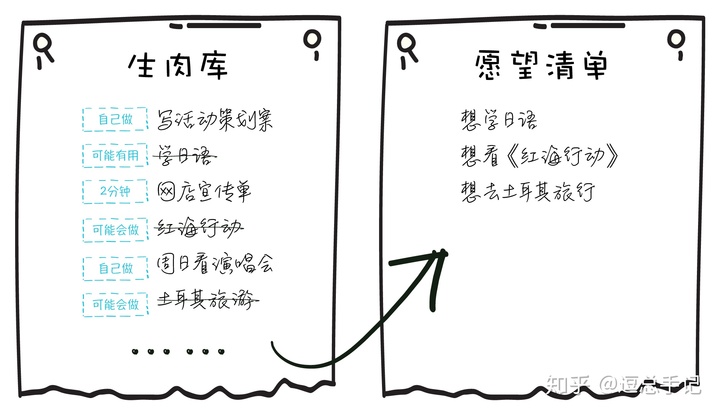 生肉库
自己做 写活动策划案
可能有用 学日语
2分钟 网店宣传单
可能会做 红海行动
自己做 周日看演唱会
可能会做 土耳其旅游
......
愿望清单
想学日语
想看《红海行动》
想去土耳其旅行
知乎 @逗总手记